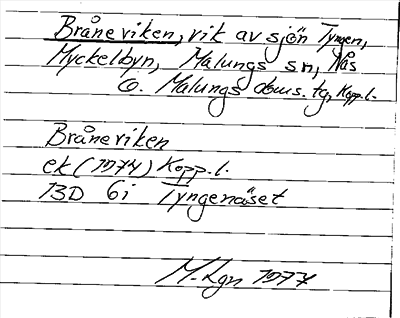 Bråneviken, vik av sjön Tyngen,
Myckelbyn, Malungs sn, Nås
o. Malungs doms. tg, Kopp.l.
Bråneviken
ek (1974) Kopp.l.
13D 6i Tyngenäset
M. Lgn 1977